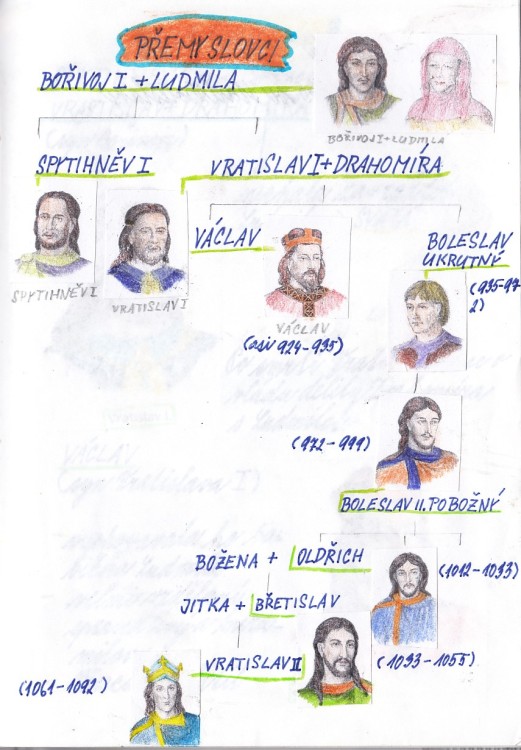 PŘEMYSLOVCI
BOŘIVOJ I + LUDMILA
BOŘIVOJ I + LUDMILA
SPYTIHNĚV I
VRATISLAV I + DRAHOMÍRA
VÁCLAV
BOLESLAV
UKRUTNÝ
(935-97
2)
SPYTIHNĚV I
VRATISLAV I
VÁCLAV
(asi 924-935)
(972-999)
BOLESLAV II. POBOŽNÝ
BOŽENA + OLDŘICH
(1012-1033)
JITKA + BŘETISLAV
VRATISLAV II
(1033-1055)
(1061-1092)